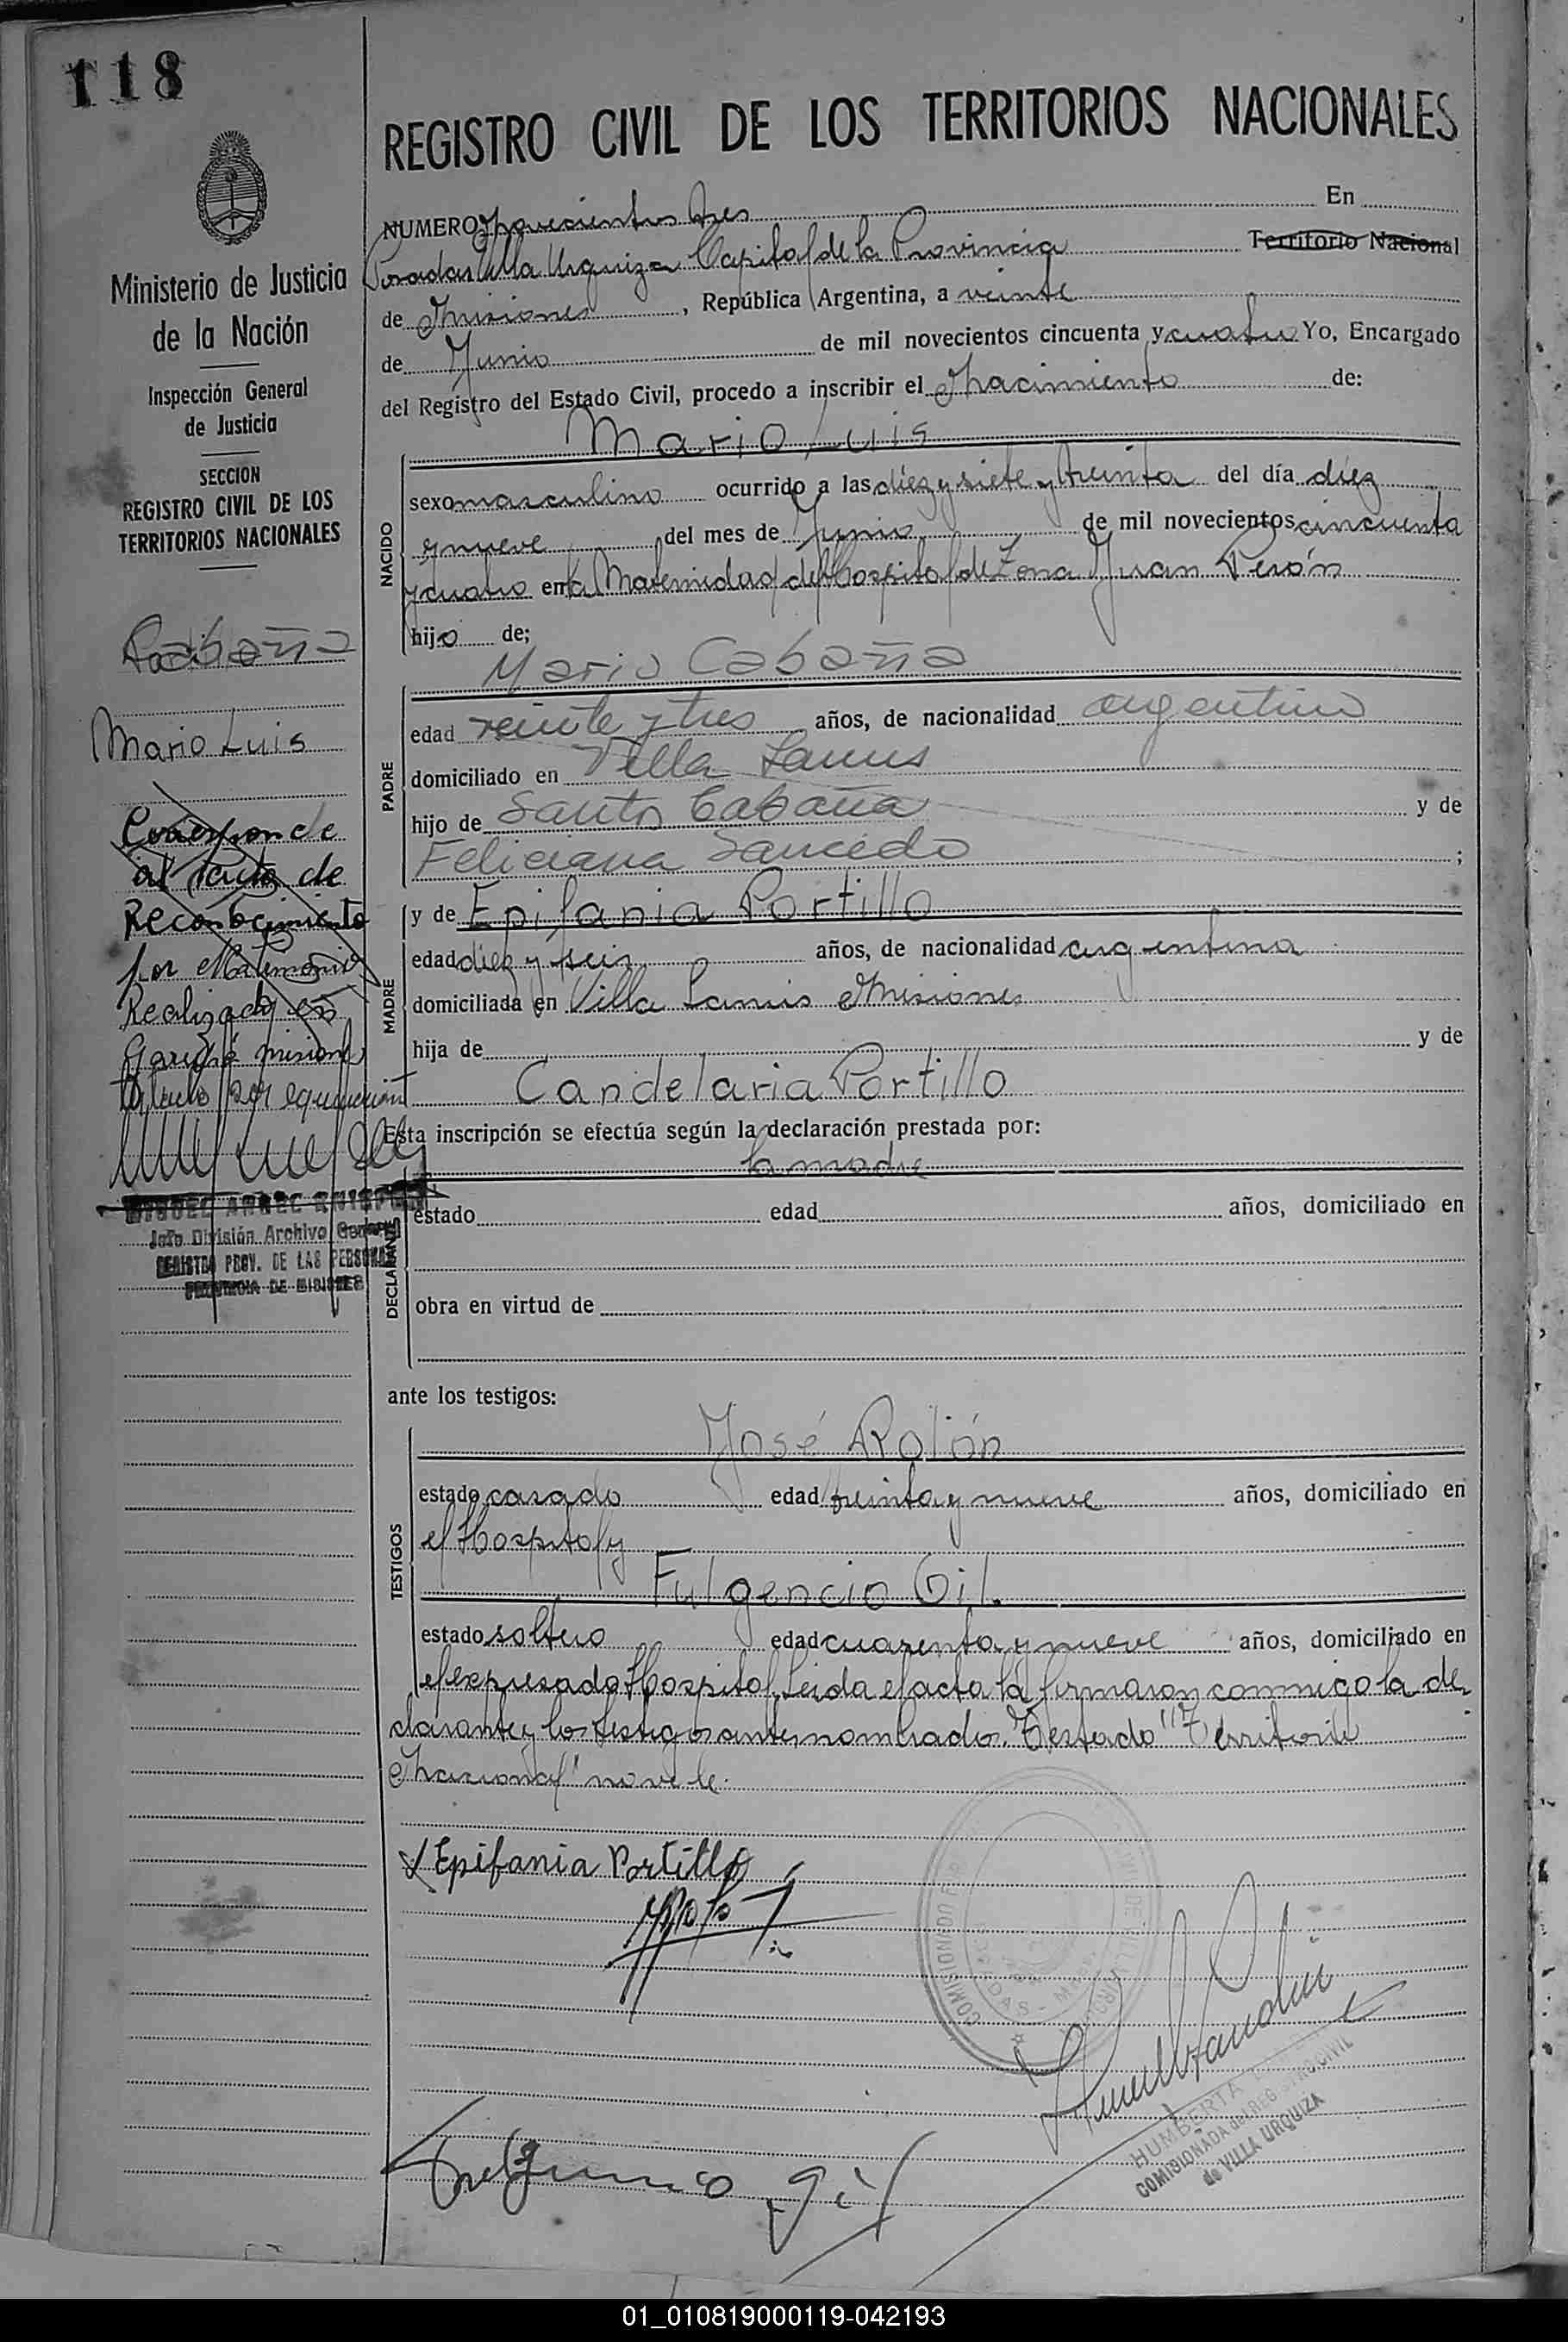 118
REGISTRO CIVIL DE LOS TERRITORIOS NACIONALES
Ministerio de Justicia
de la Nación
Inspección General
de Justicia
SECCION
REGISTRO CIVIL DE LOS
TERRITORIOS NACIONALES
Cabaña
Mario Luis
Corresponde
al Acta de
Reconocimiento
por Matrimonio
Realizado en
Garupá Misiones
NUMERO Novecientos tres En
Posadas Villa Urquiza Capital de la Provincia Territorio Nacional
de Misiones, República Argentina, a veinte
de Junio de mil novecientos cincuenta y cuatro Yo, Encargado
del Registro del Estado Civil, procedo a inscribir el Nacimiento de:
Mario Luis
NACIDO
sexo masculino ocurrido a las diez y siete y treinta del día diez
y nueve del mes de Junio de mil novecientos cincuenta
y cuatro en la Maternidad del Hospital de Zona Juan Perón
hijo de;
Mario Cabaña
PADRE
edad veinte y tres años, de nacionalidad argentino
domiciliado en Villa Lanus
hijo de Santos Cabaña y de
Feliciana Saucedo ;
y de Epifania Portillo
MADRE
edad diez y seis años, de nacionalidad argentina
domiciliada en Villa Lanus Misiones
hija de y de
Candelaria Portillo
Esta inscripción se efectúa según la declaración prestada por:
la madre
DECLARANTE
estado edad años, domiciliado en
obra en virtud de
MIGUEL ANGEL
Jefe División Archivo General
REGISTRO PROV. DE LAS PERSONAS
PROVINCIA DE MISIONES
ante los testigos:
José Rolón
TESTIGOS
estado casado edad treinta y nueve años, domiciliado en
el Hospital y
Fulgencio Gil.
estado soltero edad cuarenta y nueve años, domiciliado en
el expresado Hospital. Leida el acta la firmaron conmigo la de
clarante y los testigos antes nombrados. Testado "Territorio
Nacional" no vale.
Epifania Portillo
HUMBERTA
COMISIONADA del REGISTRO CIVIL
de VILLA URQUIZA
Fulgencio gil
01_010819000119-042193